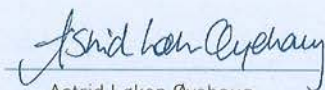 Astrid Løken Øyehaug
Astrid Løken Øyehaug